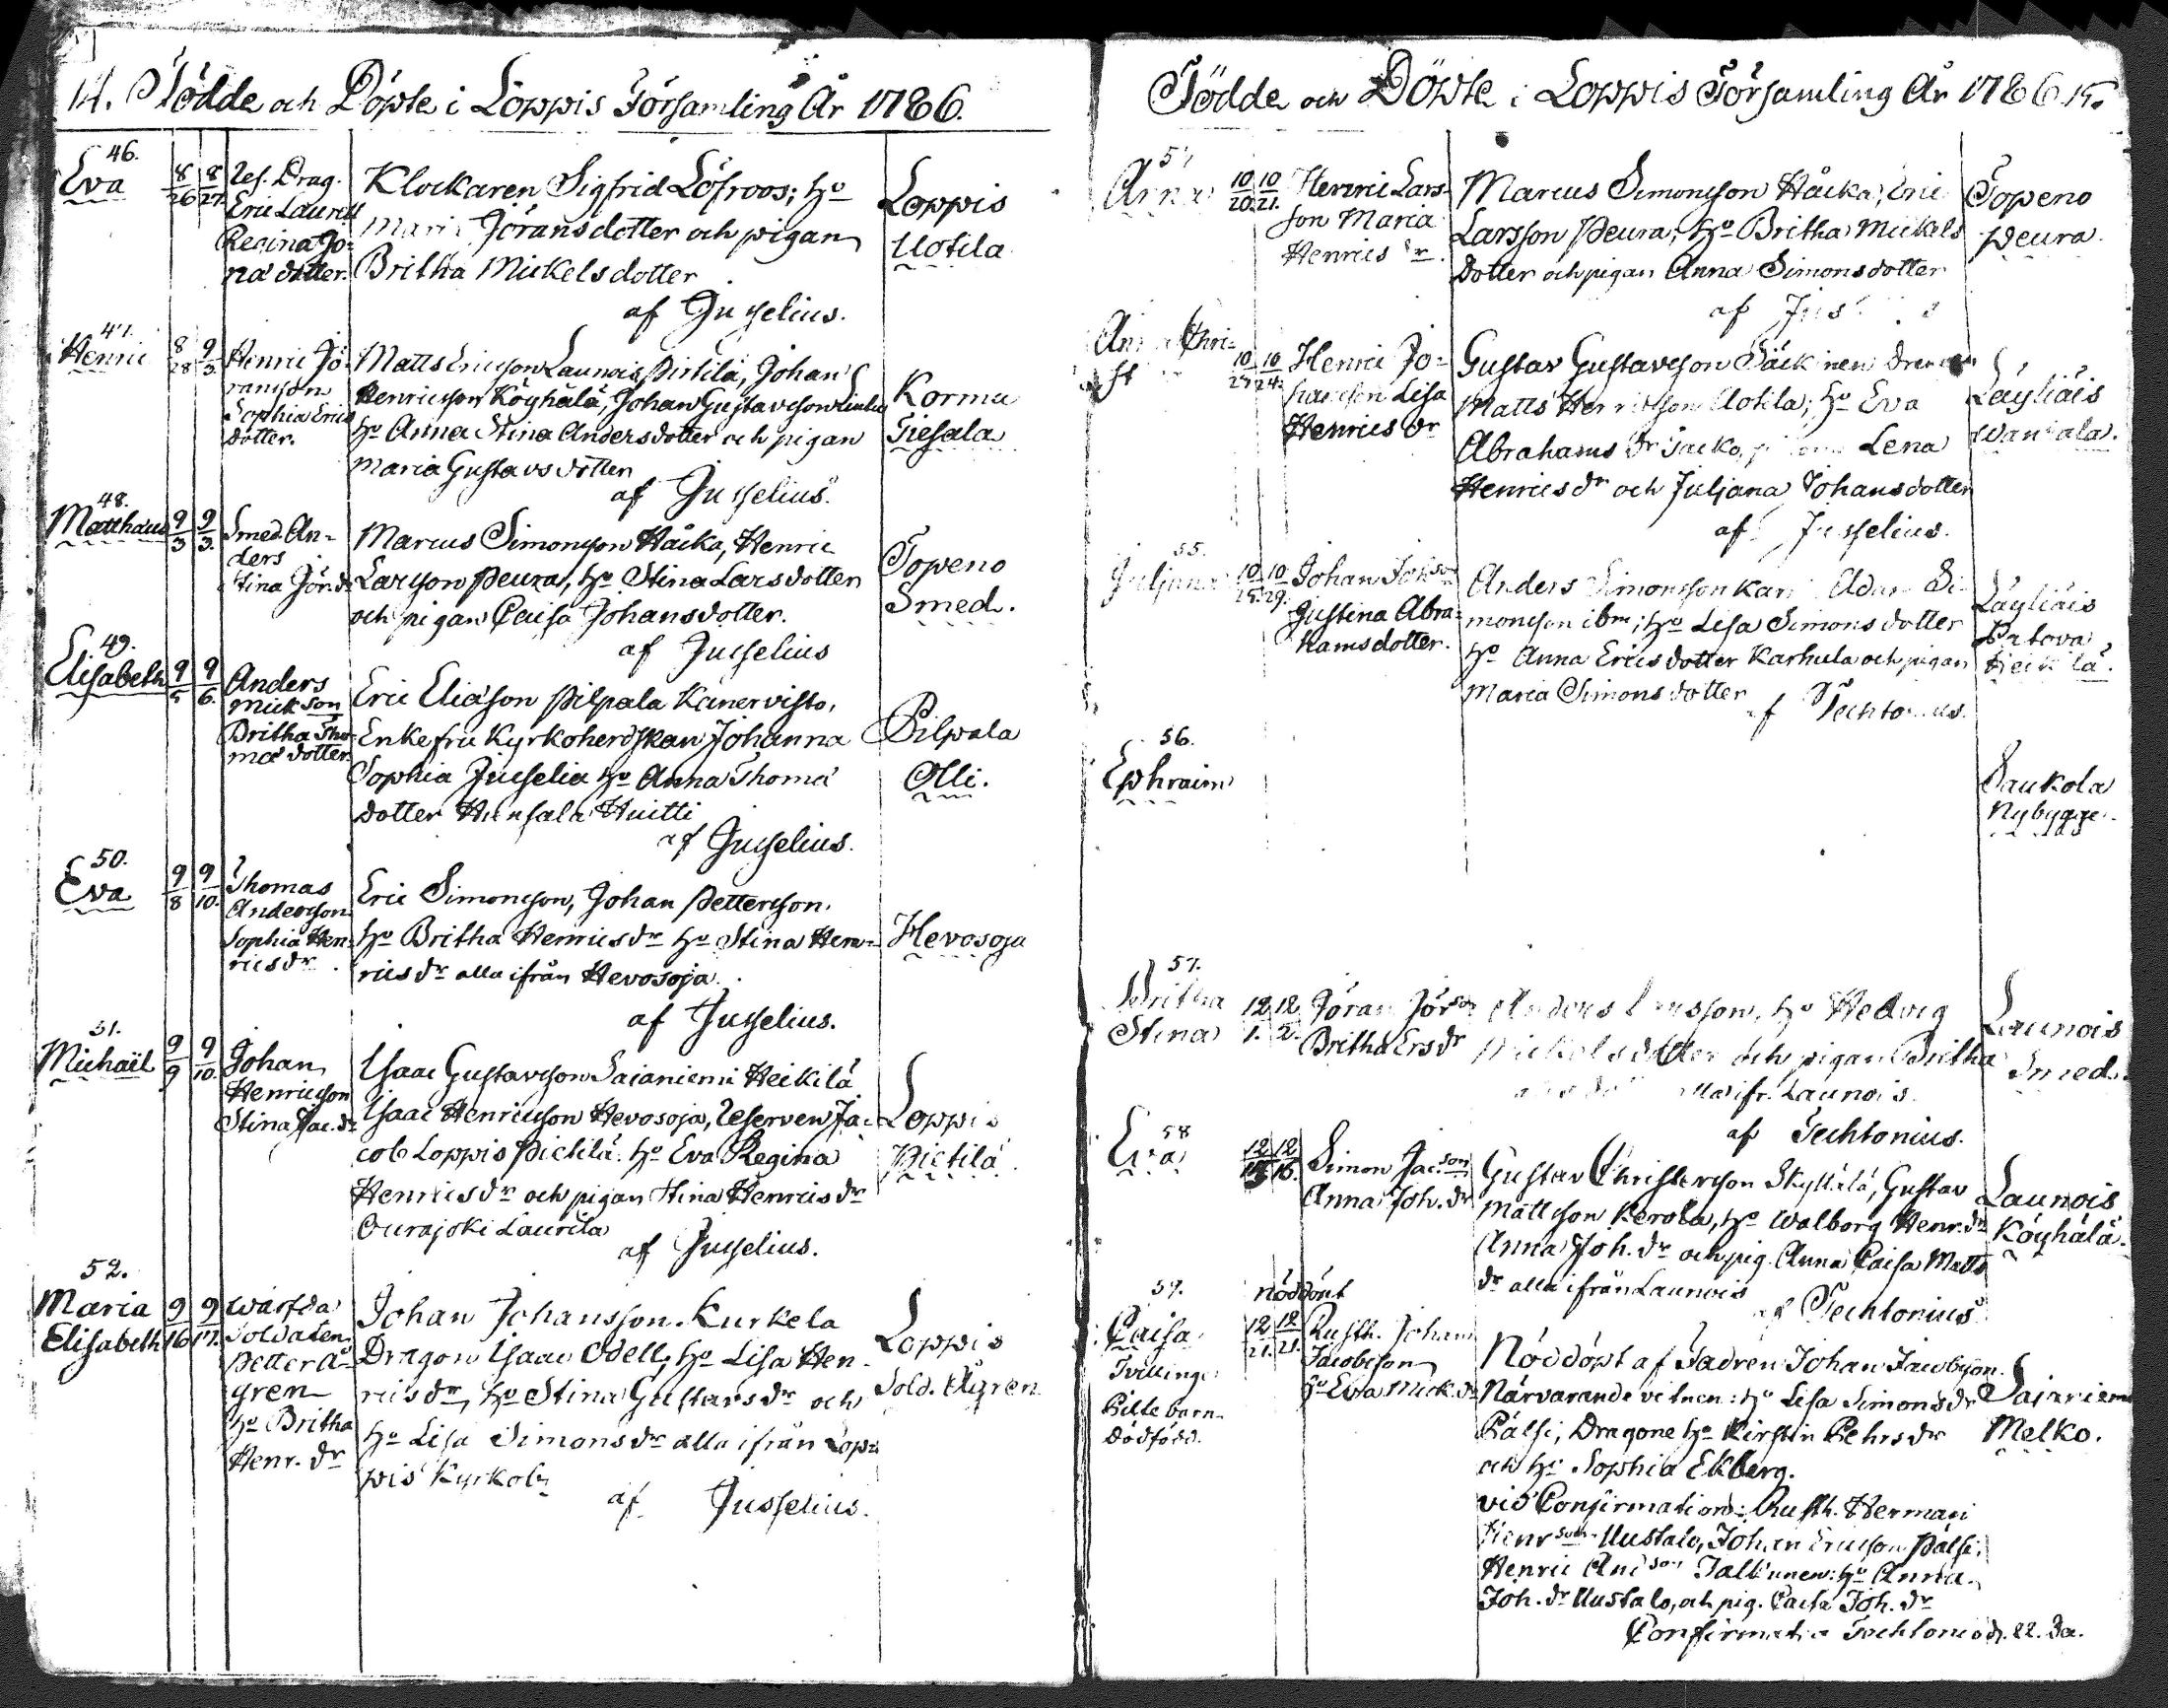 14. Födde och Döpte i Loppis Församling År 1786.
46.
Eva
8 8
26 27.
Res. Drag.
Eric Laurell
Regina Jo-
ha dotter.
Klockaren Sigfrid Löfroos; Ho
Maria Jöransdotter och pigan
Britha Mickelsdotter
af Jusselius.
Loppis
Uotila
47.
Henric
8 9
28 3.
Henric Jö-
ransson
Sophia Erics
dotter.
Matts Ericsson Launois Pirtilä, Johan
Henricsson Köyhälä, Johan Gustavsson
Ho Anna Stina Andersdotter och pigan
Maria Gustavsdotter
af Jusselius.
Kormu
Tiesala
48.
Matthæus
9 9
3 3.
Smed. An-
ders
Stina Jör. dr
Marcus Simonsson Håcka, Henric
Larsson Peura, Ho Stina Larsdotter
och pigan Caisa Johansdotter.
af Jusselius
Topeno
Smed.
49.
Elisabeth
9 9
5 6.
Anders
Mickson
Britha Tho-
mæ dotter.
Eric Eliæson Pilpala Kanervisto,
Enkefru Kyrkoherdskan Johanna
Sophia Juselia Ho Anna Thomæ
dotter Hunsala Huitti
af Jusselius.
Pilpala
Olli.
50.
Eva
9 9
8 10.
Thomas
Andersson
Sophia Hen-
rics dr.
Eric Simonsson, Johan Pettersson.
Ho Britha Henricsdr Ho Stina Hen-
ricsdr alla ifrån Hevosoja.
af Jusselius.
Hevosoja
51.
Michaël
9 9
9 10.
Johan
Henricsson
Stina Jac. dr
Isaac Gustavsson Sajaniemi Heikilä
Isaac Henricsson Hevosoja, Reserven Ja-
cob Loppis Pietilä. Ho Eva Regina
Henricsdr och pigan Stina Henricsdr
Ourajoki Laurila
af Jusselius.
Loppis
Pietilä
52.
Maria
Elisabeth
9 9
16 17.
Wärfda
Soldaten
Petter Å-
gren
Ho Britha
Henr. dr
Johan Johansson Kurkela
Dragon Isaac Odell, Ho Lisa Hen-
ricsdr, Ho Stina Gustavsdr och
Ho Lisa Simonsdr alla ifrån Lop-
pis Kyrkoby
af Jusselius.
Loppis
Sold. Ågren
Födde och Döpte i Loppis Församling År 1786. 15.
Anna
10 10
20. 21.
Henric Lars-
son Maria
Henrics dr.
Marcus Simonsson Håcka, Eric
Larsson Peura, Ho Britha Mickels
dotter och pigan Anna Simonsdotter
af
Topeno
Peura.
Anna Chri-
st
10 10
24.
Henric Jo-
hansson Lisa
Henrics dr
Gustav Gustavsson Säckinen
Matts Henricsson Uotila; Ho Eva
Abrahams dr Lena
Henricsdr och Juljana Johansdotter
af Jusselius.
Läyliäis
55.
Juljana
10 10
25. 29.
Johan Johson
Justina Abra-
hamsdotter.
Anders Simonsson Adam Si-
monsson ibm; Ho Lisa Simonsdotter
Ho Anna Ericsdotter Karhula och pigan
Maria Simonsdotter af Techtonius.
Läyliäis
Patova
Heikilä.
56.
Ephraim
Saukola
Nybygge.
57.
Britha
Stina
12 12
1. 2.
Jöran Jörson
Britha Ersdr
Anders Ho Hedvig
Mickelsdotter och pigan Britha
ifr. Launois.
af Techtonius.
Launois
Smed.
58
Eva
12 12
16.
Simon Jacson
Anna Joh. dr
Gustav Christersson Skyttälä, Gustav
Mattsson Kerola, Ho Walborg Henr. dr
Anna Joh. dr och pig. Anna Caisa Matts
dr alla ifrån Launois
af Techtonius
Launois
Köyhälä.
59.
Caisa
Tvillinge
Pilte barn
Dödfödd.
nöddöpt
12 12
21. 21.
Rusth. Johan
Jacobsson
Ho Eva Mick. dr
Nöddöpt af Fadren Johan Jacobsson.
Närvarande vitnen: Ho Lisa Simonsdr
Pälsi, Dragone Ho Kirstin Pehrsdr
och Ho Sophia Ekberg.
vid Confirmation: Rusth. Herman
Henrson Uustalo, Johan Ericsson Pälsi,
Henric Andson Ho Anna
Joh. dr Uustalo, och pig. Caisa Joh. dr
Confirmatio Techtonio d. 22. Da.
Sajaniemi
Melko.